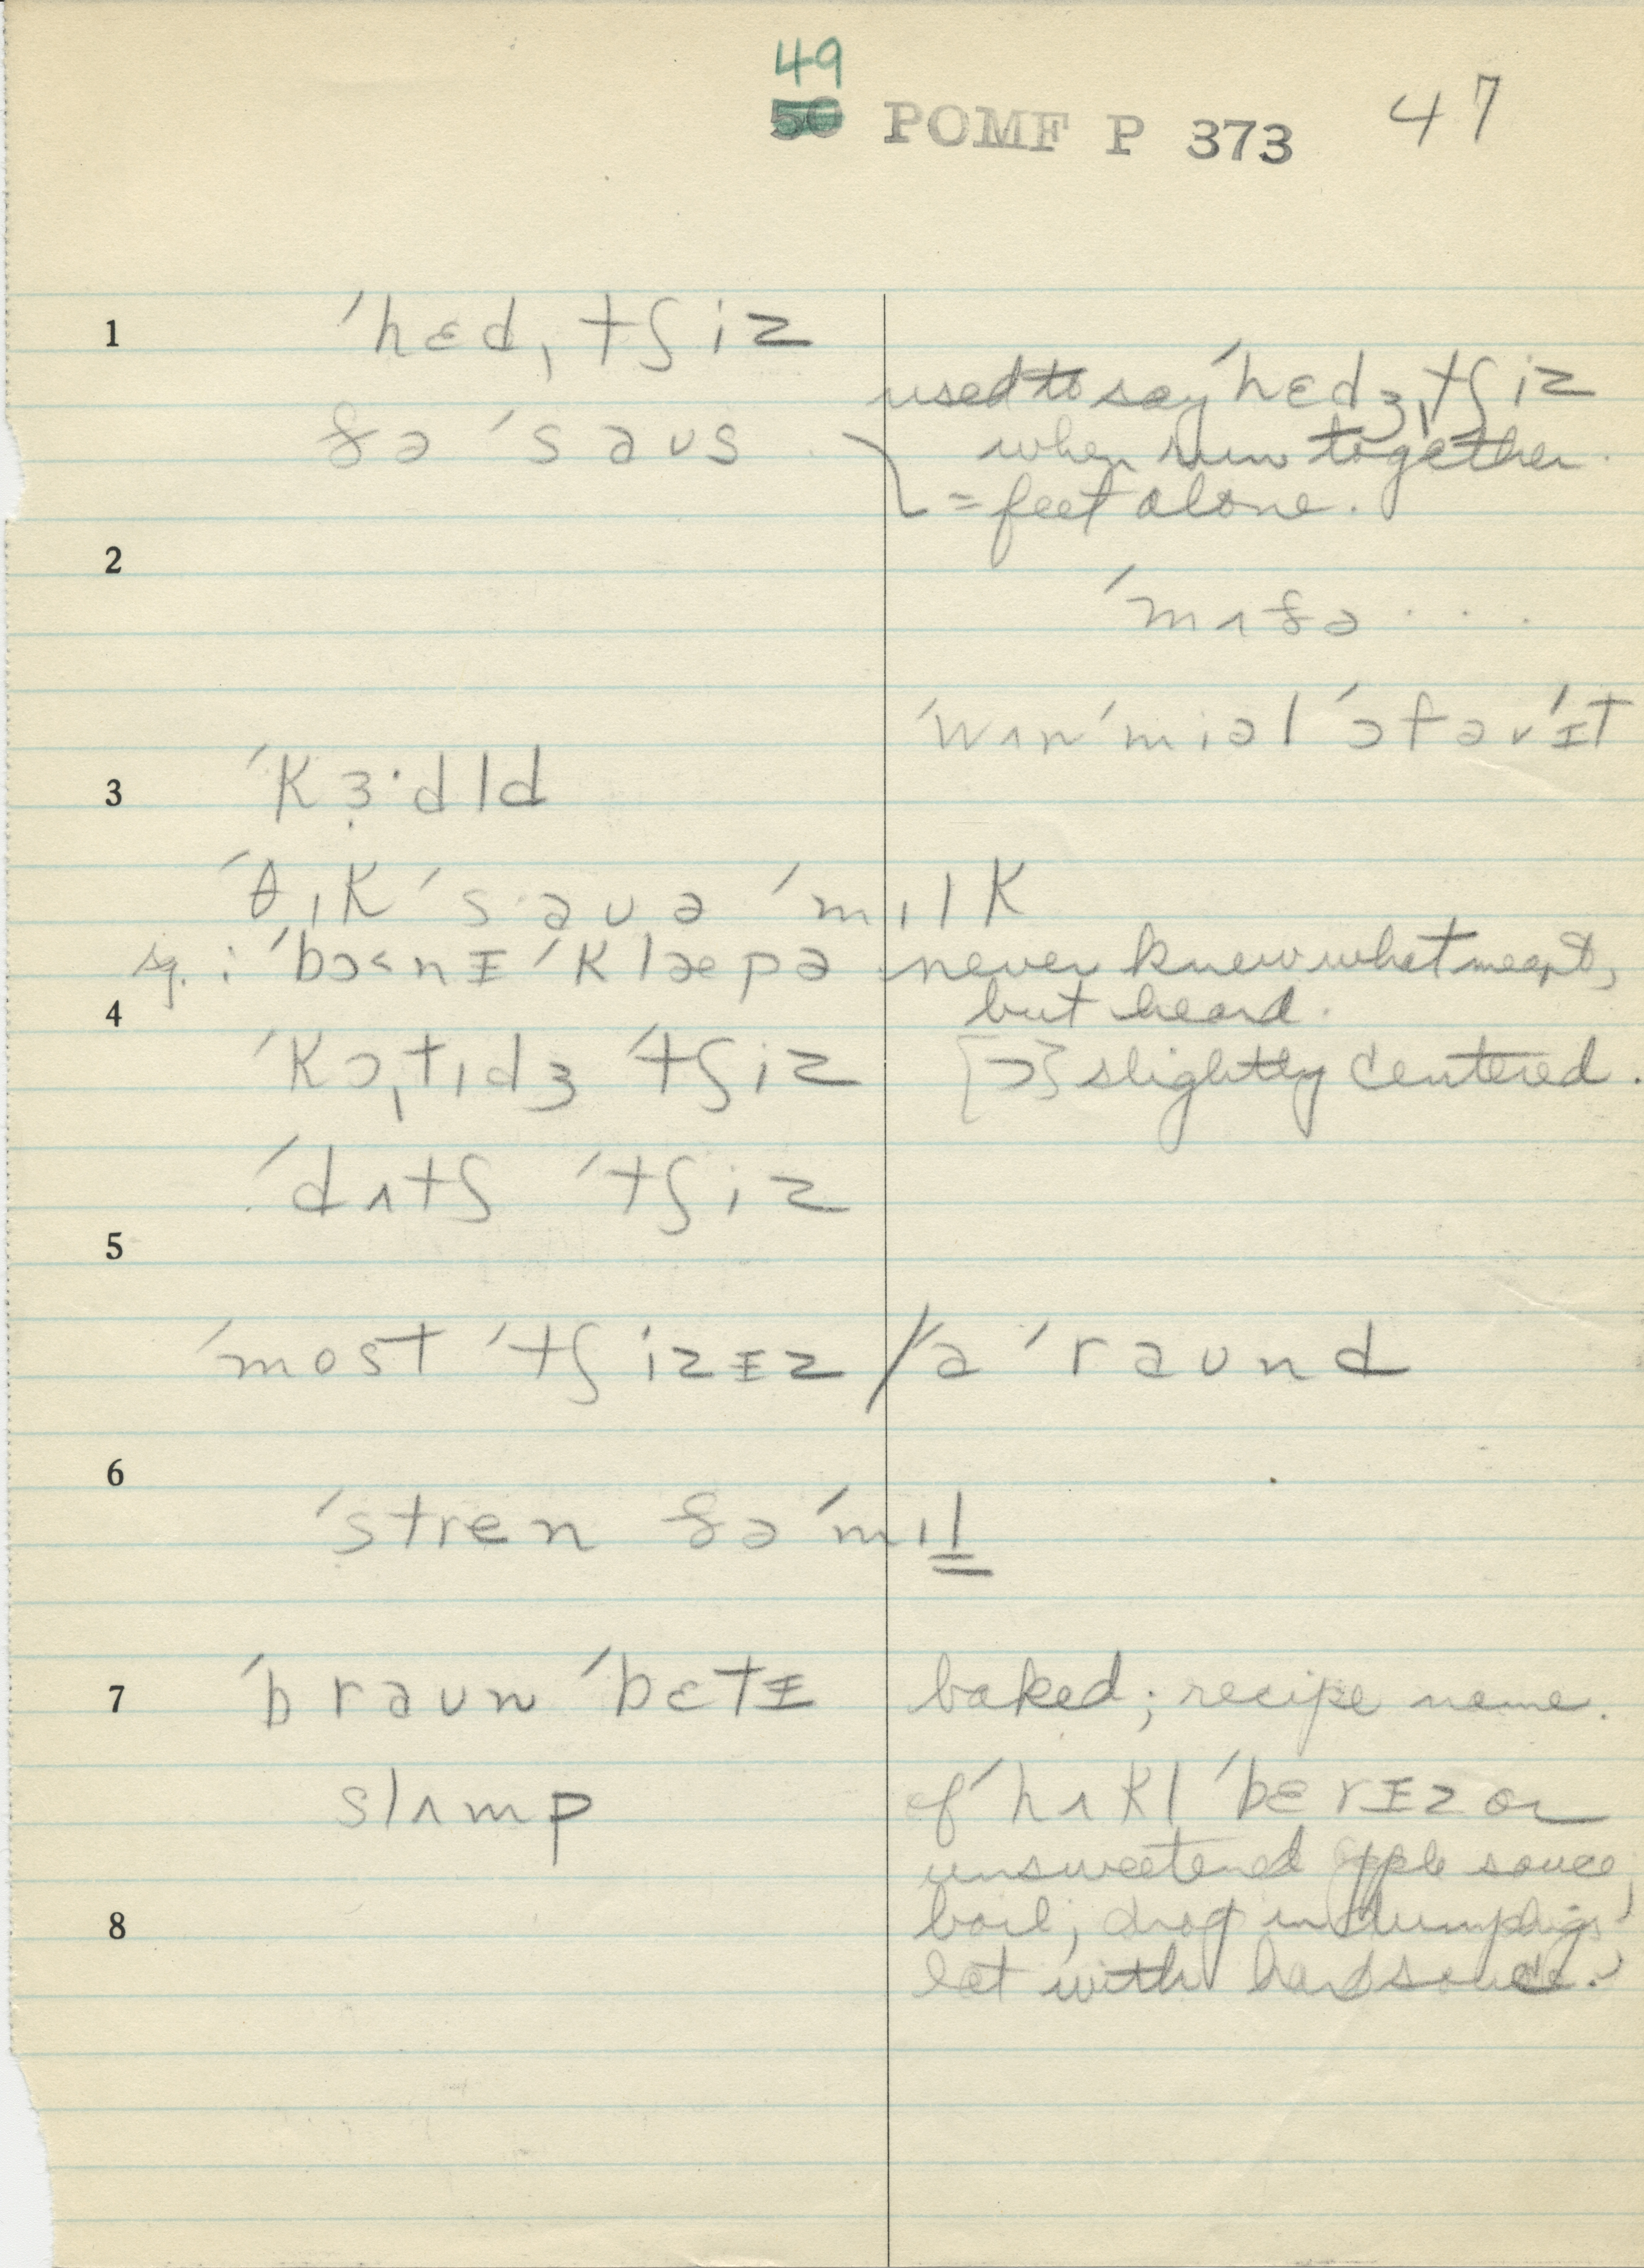 49
50 POMF P 373 47
1 ˈhɛdˌtʃiz
used to say ˈhɛdʒˌtʃiz
ðə ˈsaʊs when run together.
= feet alone.
2
ˈmʌðə . . .
ˈwʌn ˈmiəl ˈɔf əv ˈɪt
3 ˈkɜ·dld
ˈθɪk ˈsaʊə ˈmɪlk
sg. : ˈbɔ˂nɪ ˈklæpə never knew what meant,
4 but heard.
ˈkɔˌtɪdʒ ˈtʃiz [ɔ] slightly centered.
ˈdʌtʃ ˈtʃiz
5
ˈmost ˈtʃizɪz / ə ˈraʊnd
6
ˈstren ðə ˈmɪl
7 ˈbraʊn ˈbɛtɪ baked; recipe name.
slʌmp of ˈhʌkl ˈbɛrɪz or
unsweetened apple sauce,
8 boil; drop in dumplings;
eat with hard sauce.